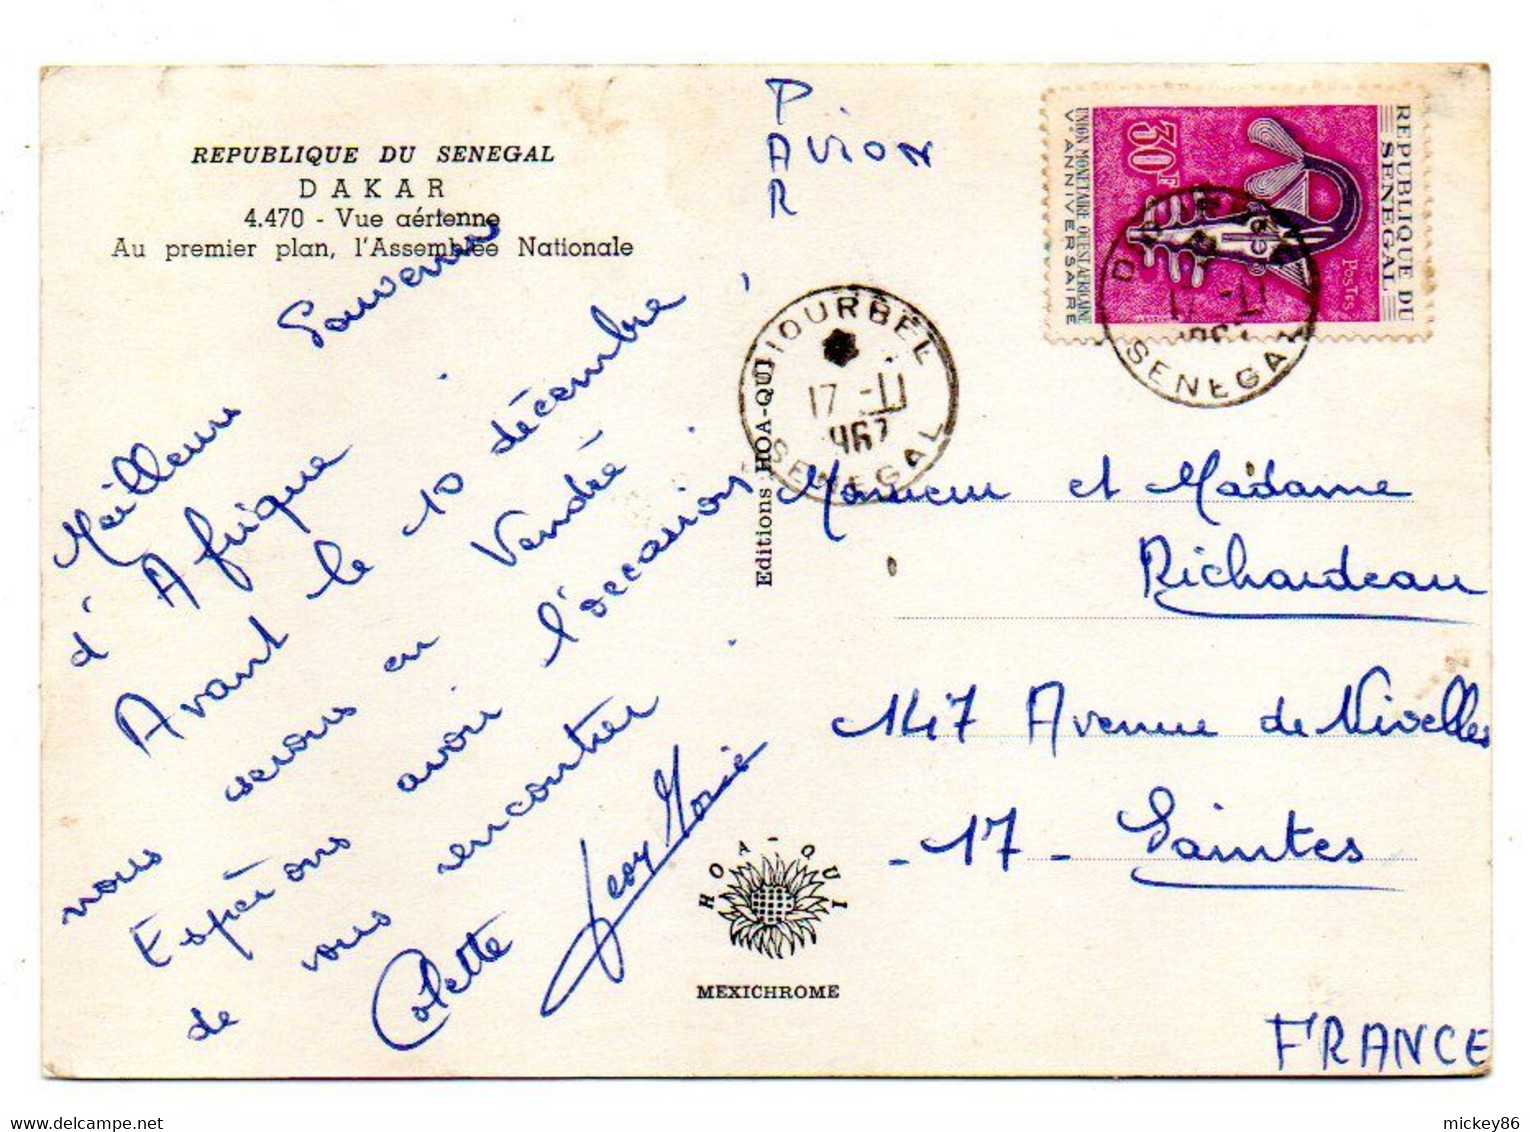 REPUBLIQUE DU SENEGAL
DAKAR
4.470 - Vue aérienne
Au premier plan, l'Assemblée Nationale
PAR
AVION
REPUBLIQUE DU
SENEGAL
Postes
30F
UNION MONETAIRE OUEST AFRICAINE
V° ANNIVERSAIRE
DIOURBEL
17 -11
1967
SENEGAL
17 -11
SENEGAL
Editions HOA-QUI
Meilleurs Souvenirs
d'Afrique
Avant le 10 décembre,
nous serons en Vendée
Espérons avoir l'occasion
de vous rencontrer.
Colette Jean Marie
Monsieur et Madame
Richardeau
147 Avenue de Nivelles
-17- Saintes
FRANCE
HOA-QUI
MEXICHROME
mickey86